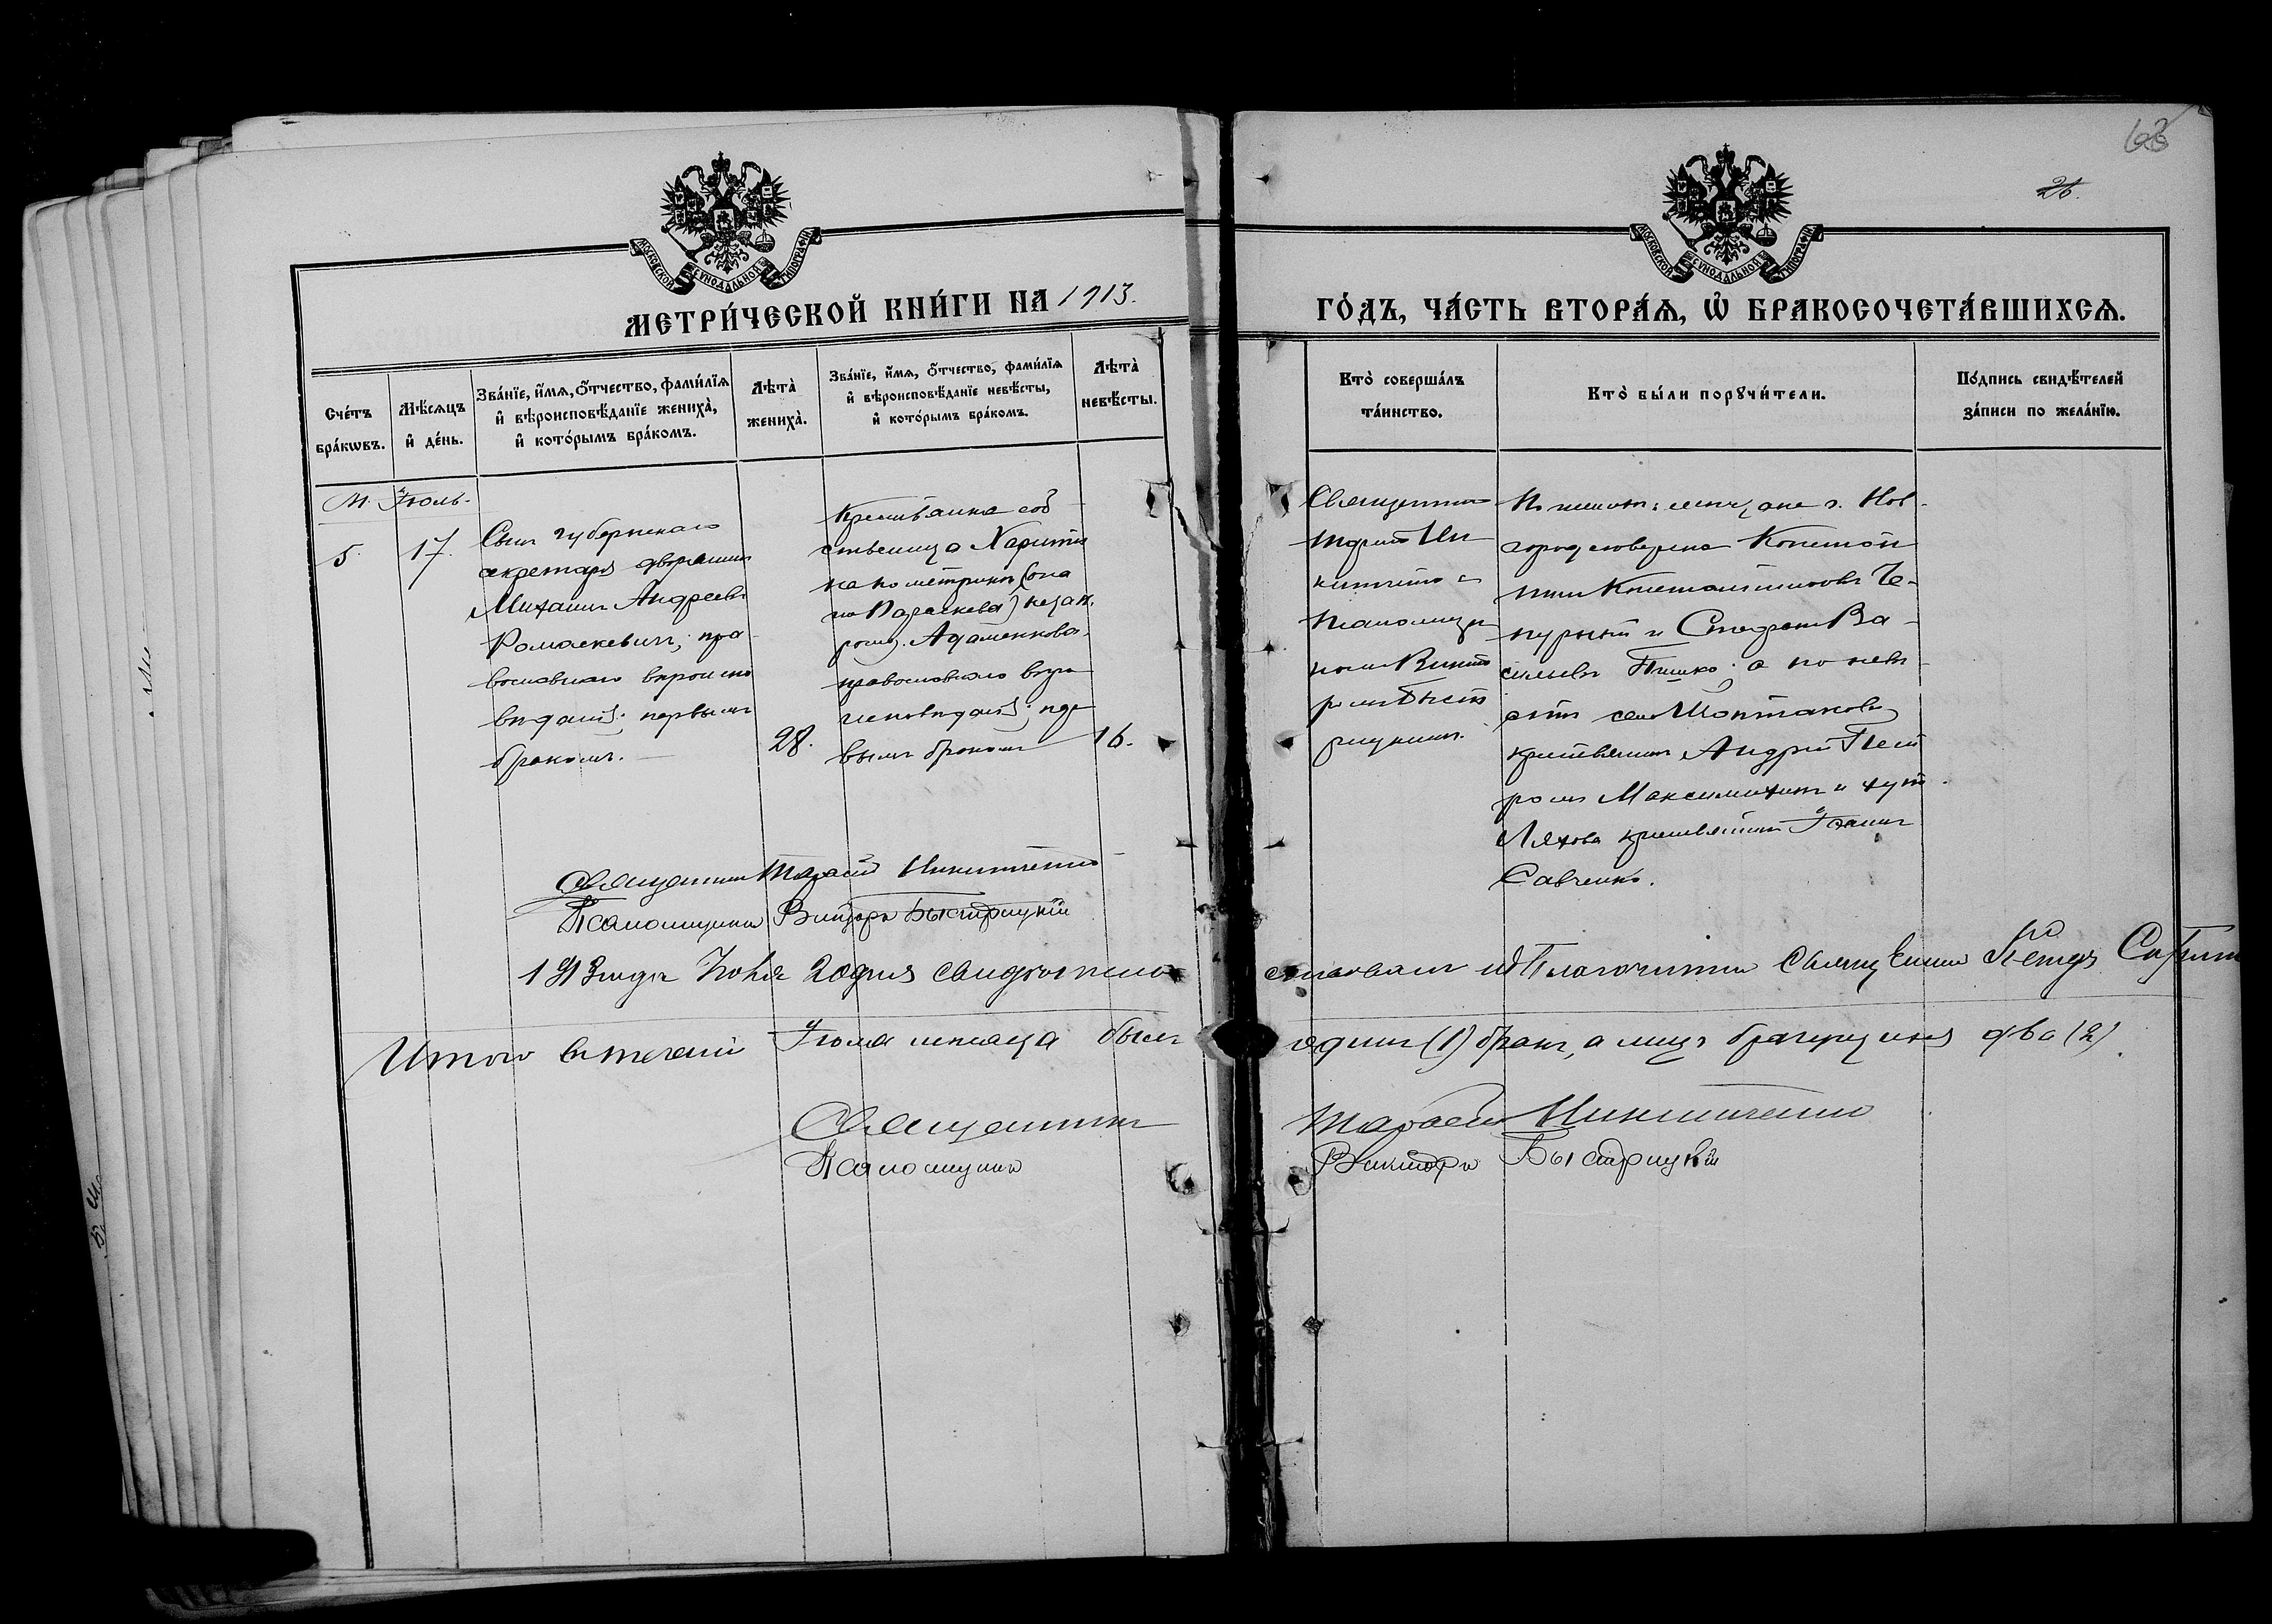 63
26.
МОСКОВСКОЙ СѴНОДАЛЬНОЙ ТИПОГРАФІИ
МОСКОВСКОЙ СѴНОДАЛЬНОЙ ТИПОГРАФІИ
МЕТРИ́ЧЕСКОЙ КНИ́ГИ НА 1913.
ГО́ДЪ, ЧА́СТЬ ВТОРА́Ѧ, Ѽ БРАКОСОЧЕТА́ВШИХСѦ.
Сче́тъ
бра́кѡвъ.
Мѣ́сѧцъ
и҆ де́нь.
Зва́нїе, и҆́мѧ, ѻ҆́тчество, фами́лїѧ
и҆ вѣроисповѣ́данїе жениха̀,
и҆ кото́рымъ бра́комъ.
Лѣта̀
жениха̀.
Зва́нїе, и҆́мѧ, ѻ҆́тчество, фами́лїѧ
и҆ вѣроисповѣ́данїе невѣ́сты,
и҆ кото́рымъ бра́комъ.
Лѣта̀
невѣ́сты.
Кто̀ соверша́лъ
та́инство.
Кто̀ бы́ли порꙋчи́тели.
По́дпись свидѣ́телей
за́писи по жела́нїю.
М. Іюль.
5.
17.
Сынъ губернскаго
секретаря дворянинъ
Михаилъ Андреевъ
Ромаскевичъ, пра-
вославнаго вѣроиспо
вѣданія; первымъ
бракомъ.
28.
соб
ственница
на по метрикѣ (она
же Параскева)
рожд. Адаменкова,
православнаго вѣро
исповѣданія; пер
вымъ бракомъ
16.
Священникъ
Тарасій Ни
китченко и
псаломщи
комъ Викто
ромъ Быст
рицкимъ.
По женихѣ: мѣщане г. Нов-
Констан
тинъ Константиновъ Че-
пурный и Стефанъ Ва-
сильевъ а по невѣ
стѣ села
крестьянинъ Андрей Пет
ровъ и хут.
Ляхова крестьянинъ Іоаннъ
Савченко.
Священникъ Тарасій Никитченко
Псаломщикъ Викторъ Быстрицкій
1913 года Іюля 20 дня свидѣтельствовалъ Благочинный Священникъ Петръ
Итого въ теченіи Іюля мѣсяца былъ одинъ (1) бракъ, а лицъ брачущихся два (2)
Священникъ Тарасій Никитченко
Псаломщикъ Викторъ Быстрицкій